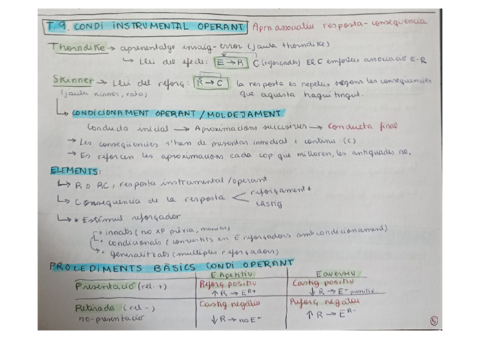 T.9. CONDI INSTRUMENTAL OPERANT Apre associatiu resposta-conseqüència
Thorndike → aprenentatge assaig-error (jaula thorndike)
↳ Llei del efecte: E → R C (reforçador) E R C enforteix associació E-R
Skinner → Llei del reforç: R → C la resposta es repeteix segons les conseqüències
(jaula skinner, rata) que aquesta hagi tingut.
↳ CONDICIONAMENT OPERANT / MOLDEJAMENT
Conducta inicial → Aproximacions successives → Conducta final
→ Les conseqüències s'han de presentar immediat i continu (C)
→ Es reforcen les aproximacions cada cop que milloren, les antiquades no.
ELEMENTS:
↳ R o RC, resposta instrumental/operant
↳ Conseqüència de la resposta reforçament *
càstig
↳ * Estímul reforçador
innats (no XP prèvia,
condicionats (convertits en E reforçadors amb condicionament)
generalitzats (multiples reforçadors)
PROCEDIMENTS BÀSICS CONDI OPERANT
E Apetitiu E aversiu
Presentació (rel +) Reforç positiu Càstig positiu
↑ R → E ↓ R → E
Retirada (rel -) Càstig negatiu Reforç negatiu
no-presentació ↓ R → no E ↑ R → E